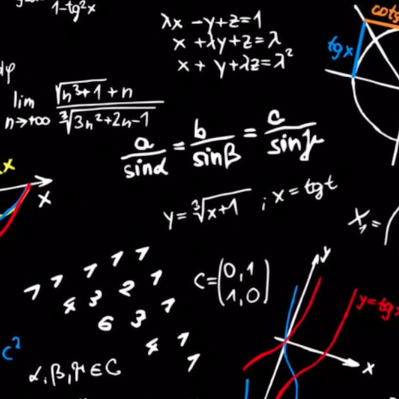 1-tg²x
λx -y+z=1
x +λy+z=λ
x + y+λz=λ²
cotg
tgx
lim n→+∞ (√(n³+1) + n)/(∛(3n²+2n-1))
a/sinα = b/sinβ = c/sinγ
x
x
y=∛(x+1) ; x=tgt
X₁=(
1 1 1 1 1
4 3 2 1
6 3 1
4 1
1
C=(0,1
1,0)
y
y=tgx
x
c²
α,β,γ∈C